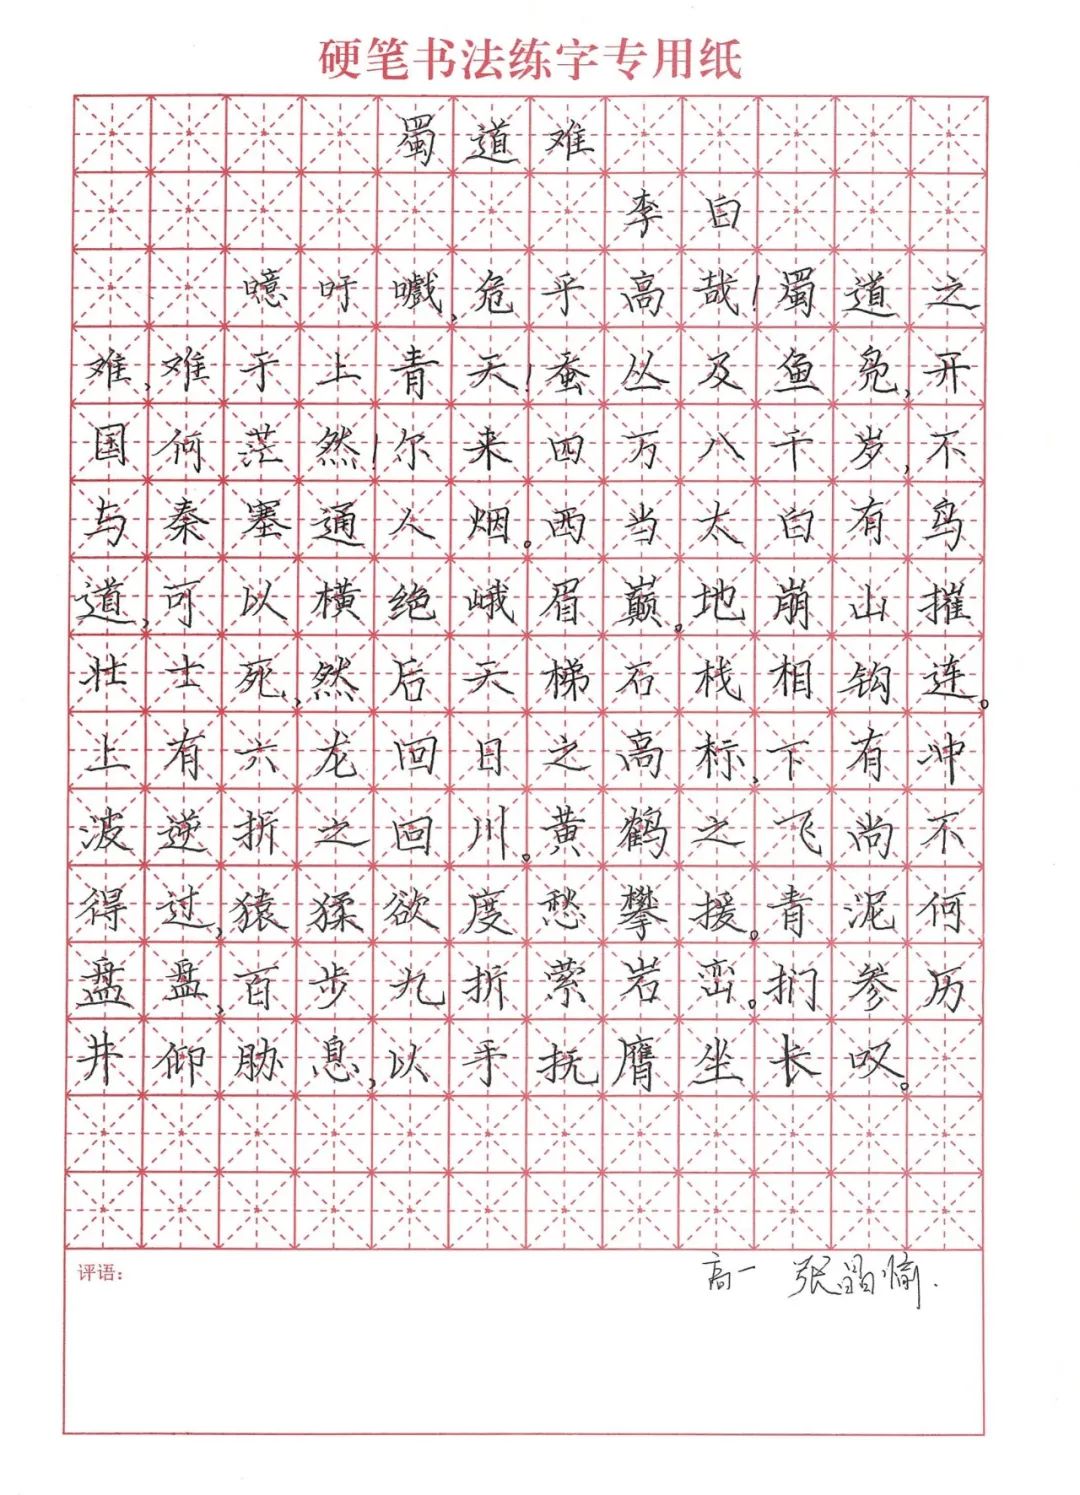 硬笔书法练字专用纸
蜀道难
李白
噫吁嚱,危乎高哉!蜀道之
难,难于上青天!蚕丛及鱼凫,开
国何茫然!尔来四万八千岁,不
与秦塞通人烟。西当太白有鸟
道,可以横绝峨眉巅。地崩山摧
壮士死,然后天梯石栈相钩连。
上有六龙回日之高标,下有冲
波逆折之回川。黄鹤之飞尚不
得过,猿猱欲度愁攀援。青泥何
盘盘,百步九折萦岩峦。扪参历
井仰胁息,以手抚膺坐长叹。
评语:
高一 张晶愉.